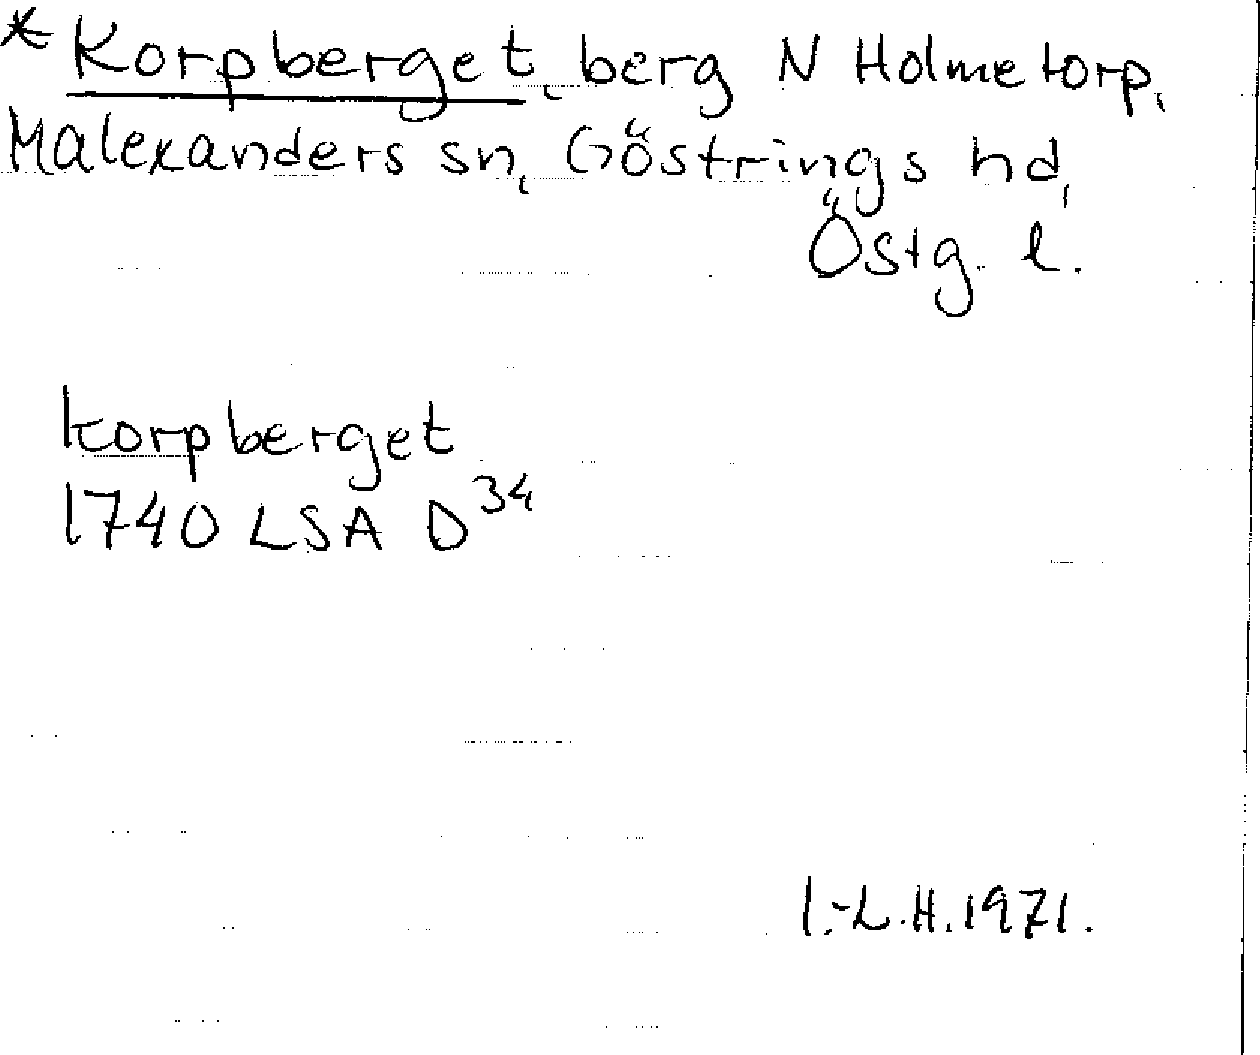 * Korpberget, berg N Holmetorp,
Malexanders sn, Göstrings hd,
Östg. l.
korpberget
1740 LSA D34
I.-L.H.1971.